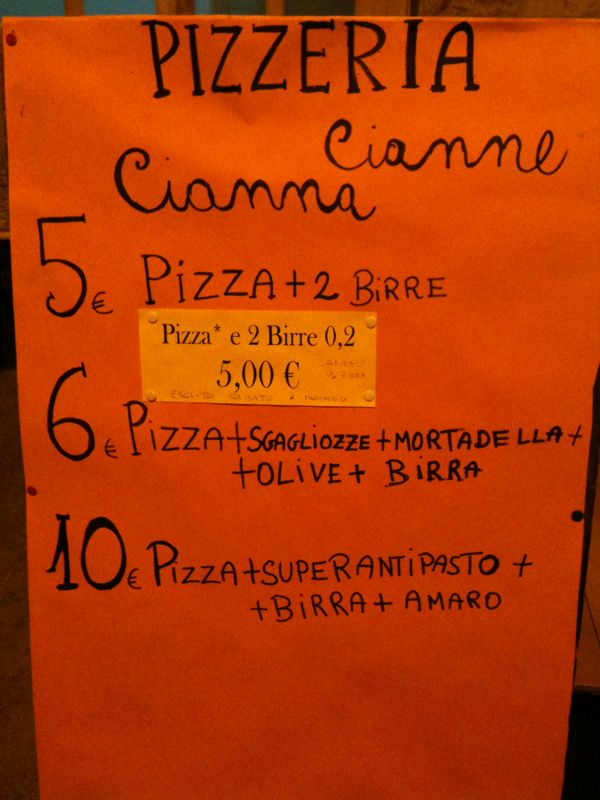 PIZZERIA
Cianna Cianne
5€ PIZZA+2 BIRRE
Pizza* e 2 Birre 0,2
5,00 €
ESCLUSO SABATO
6€ PIZZA+SGAGLIOZZE+MORTADELLA+
+OLIVE+ BIRRA
10€ PIZZA+SUPERANTIPASTO +
+BIRRA+ AMARO